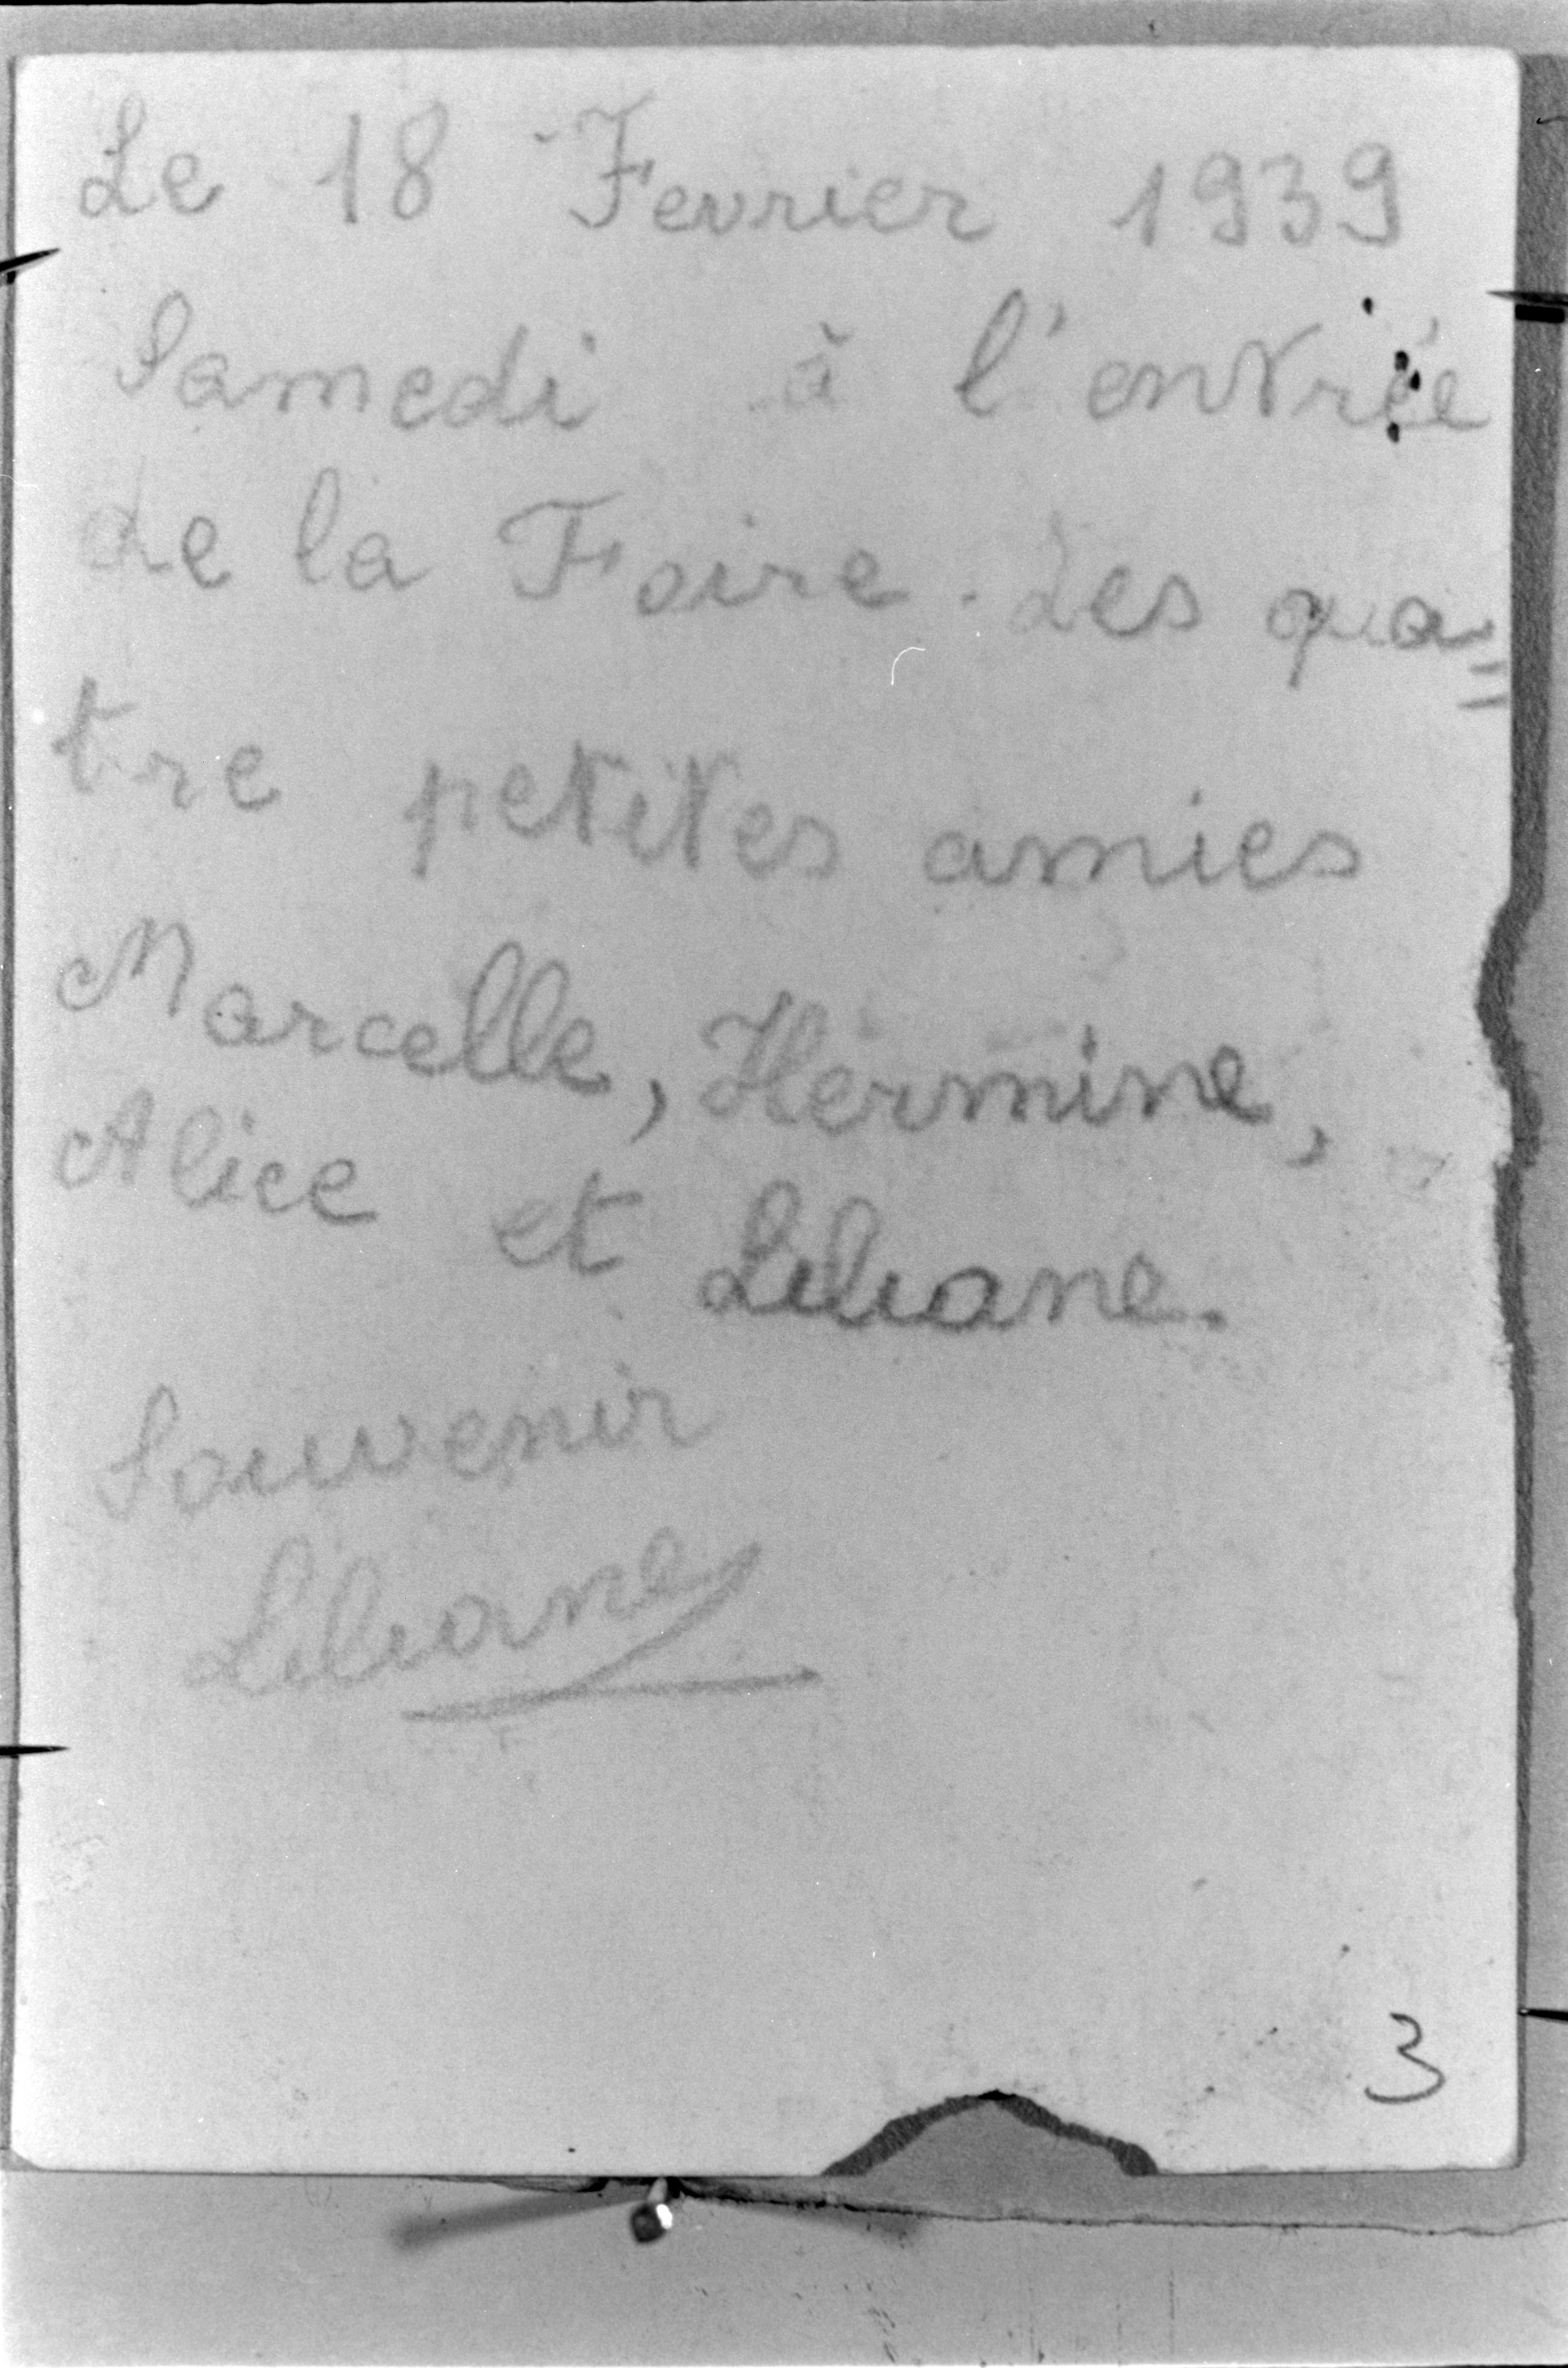 Le 18 Fevrier 1939
Samedi à l'entrée
de la Foire. Les qua=
tre petites amies
Marcelle, Hermine,
Alice et Liliane.
Souvenir
Liliane
3